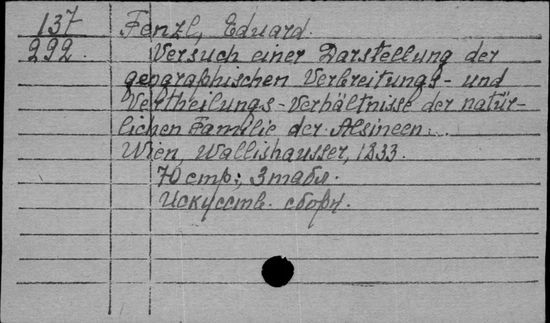 137 Fenzl, Eduard.
292. Versuch einer Darstellung der
geographischen Verbreitungs- und
Vertheilungs-Verhältnisse der natür-
lichen Familie der Alsineen...
Wien, Wallishausser, 1833.
70 стр.; 3 табл.
Искусств. сборн.